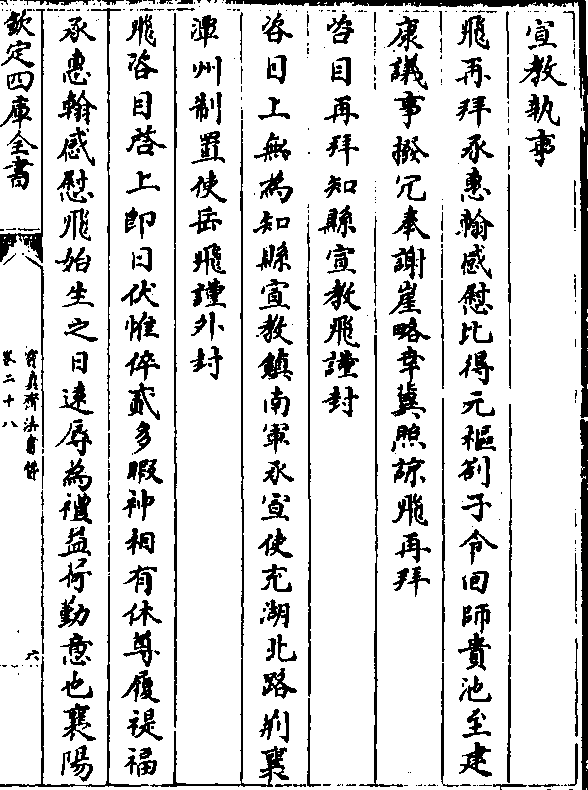 宣教執事
飛再拜承惠翰感慰比得元樞劄子令回師貴池至建
康議事撥冗奉謝崖略幸冀照諒飛再拜
咨目再拜知縣宣教飛謹封
咨目上無為知縣宣教鎮南軍承宣使充湖北路荊襄
潭州制置使岳飛謹外封
飛咨目啓上即日伏惟倅貳多暇神相有休尊履禔福
承惠翰感慰飛始生之日遠辱為禮益荷勤意也襄陽
欽定四庫全書
寶真齋法書贊
卷二十八
六